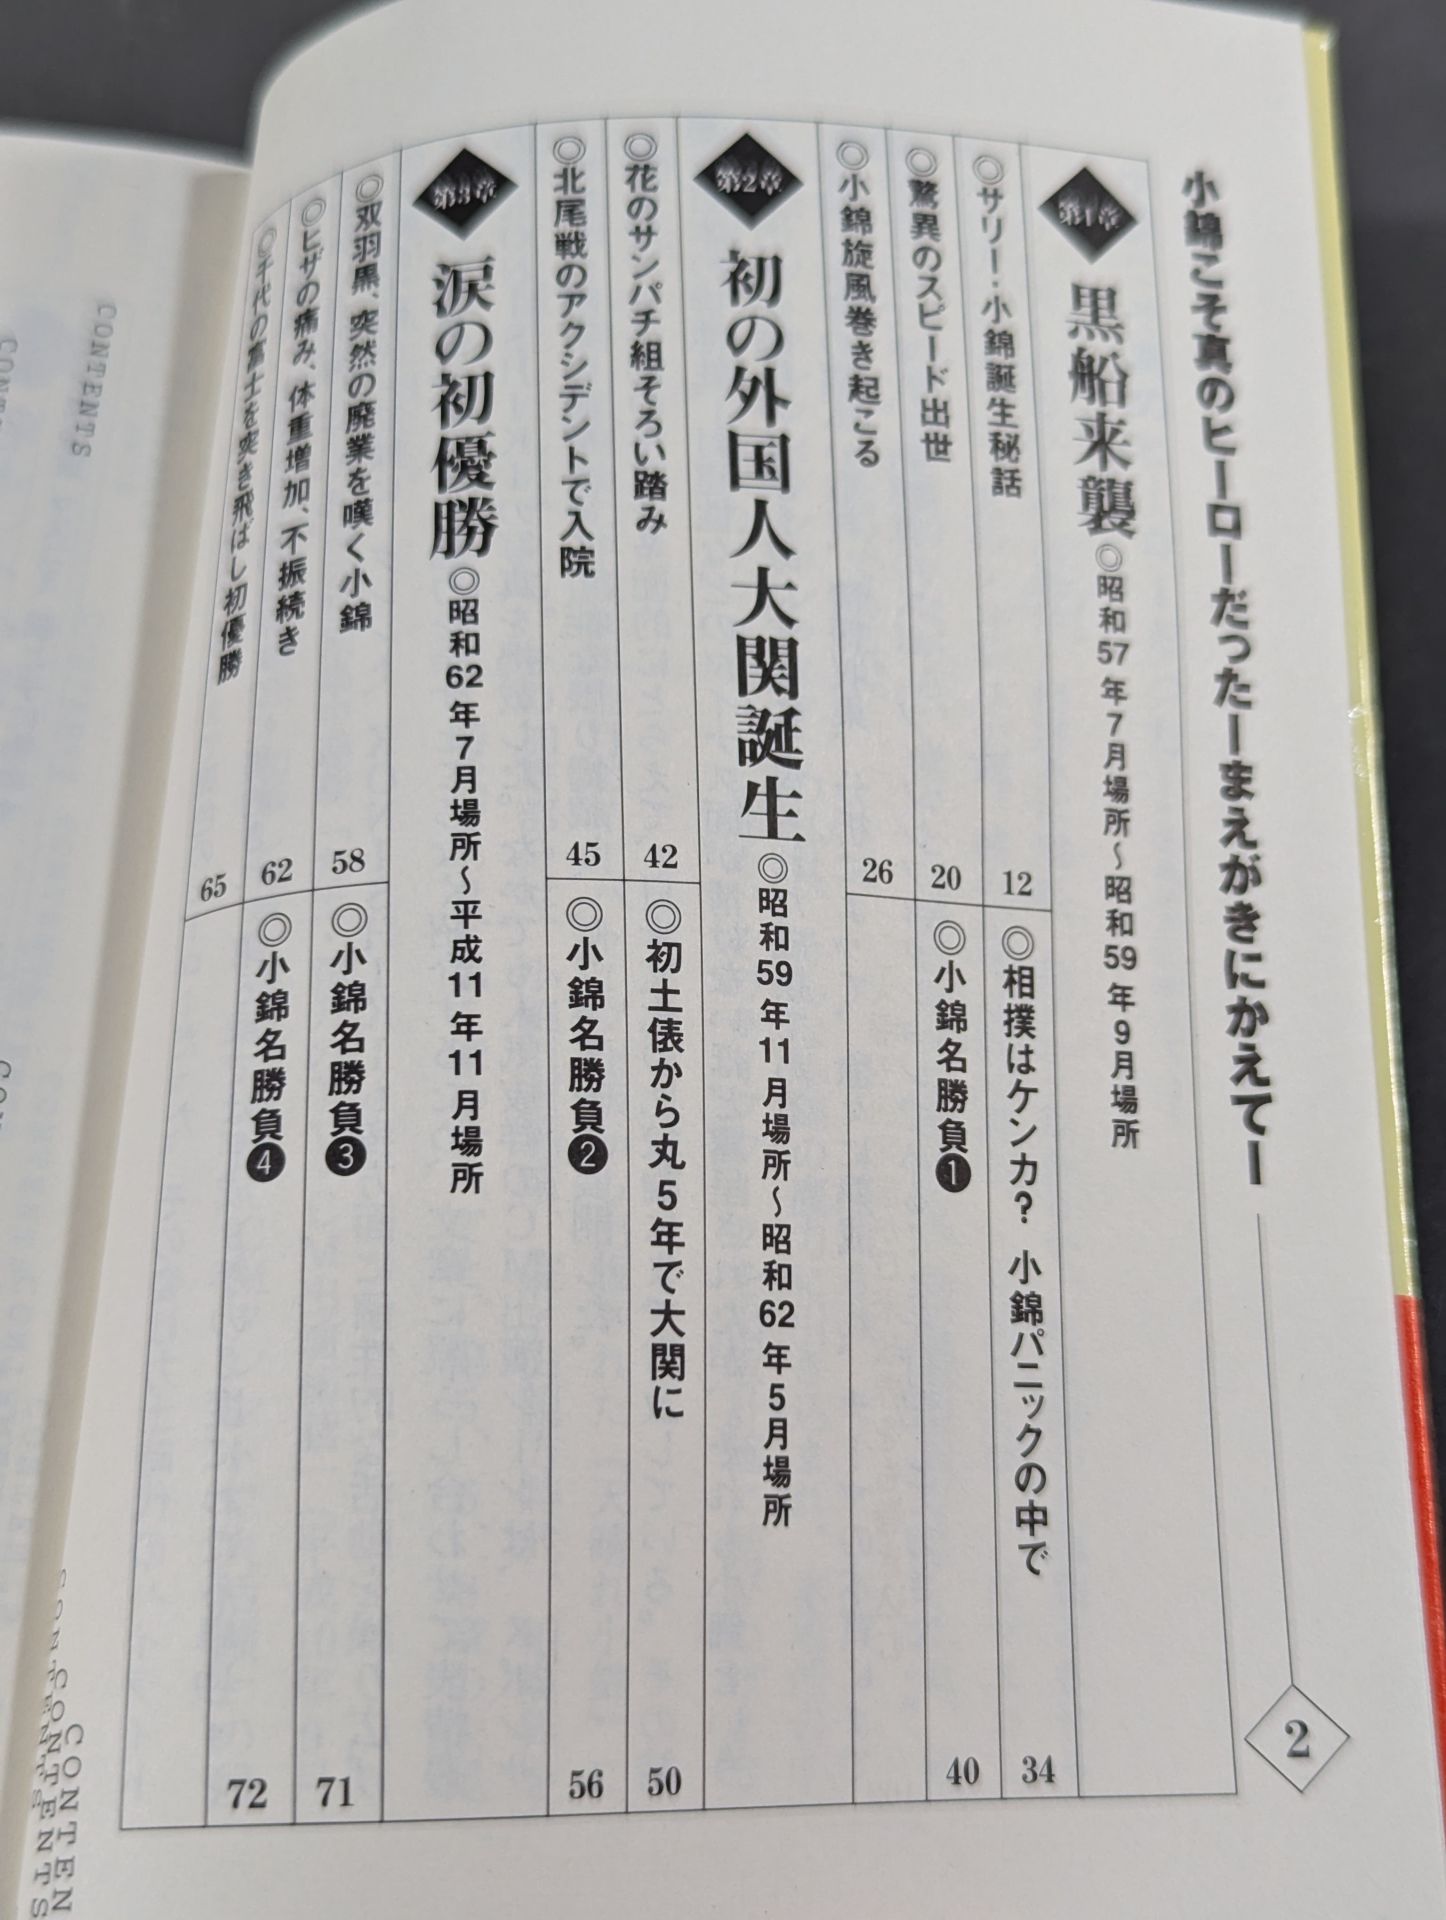 小錦こそ真のヒーローだったーまえがきにかえてー 2
第1章 黒船来襲◎昭和57年7月場所〜昭和59年9月場所
◎サリー・小錦誕生秘話 12
◎驚異のスピード出世 20
◎小錦旋風巻き起こる 26
◎相撲はケンカ? 小錦パニックの中で 34
◎小錦名勝負❶ 40
第2章 初の外国人大関誕生◎昭和59年11月場所〜昭和62年5月場所
◎花のサンパチ組そろい踏み 42
◎北尾戦のアクシデントで入院 45
◎初土俵から丸5年で大関に 50
◎小錦名勝負❷ 56
第3章 涙の初優勝◎昭和62年7月場所〜平成11年11月場所
◎双羽黒、突然の廃業を嘆く小錦 58
◎ヒザの痛み、体重増加、不振続き 62
◎千代の富士を突き飛ばし初優勝 65
◎小錦名勝負❸ 71
◎小錦名勝負❹ 72
CONTENTS
CONTENTS
CONTENTS
CONTEN